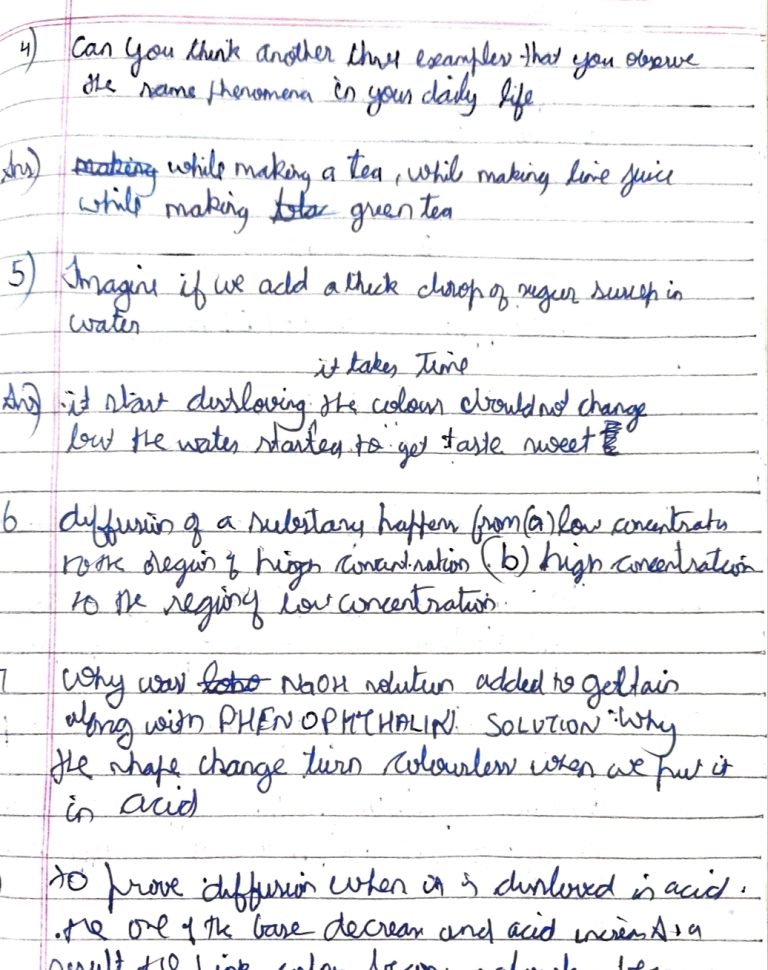 4) Can you think another three examples that you observe
the same phenomena in your daily life
Ans) making while making a tea, while making lime juice
while making green tea
5) Imagine if we add a thick drop of sugar surup in
water
it takes Time
Ans) it start dissloving the colour change
but the water started to get taste sweet
6 diffusion of a substany happen from (a) low concentrate
region of high concentration (b) high concentration
to the region of low concentration.
7 Why was NaOH solution added to geltain
along with PHENOPHTHALIN SOLUTION Why
the shape change turn colourless when we put it
in acid
to prove diffusion when it is dissloved in acid.
the one of the base decrease and acid increas As a
result the